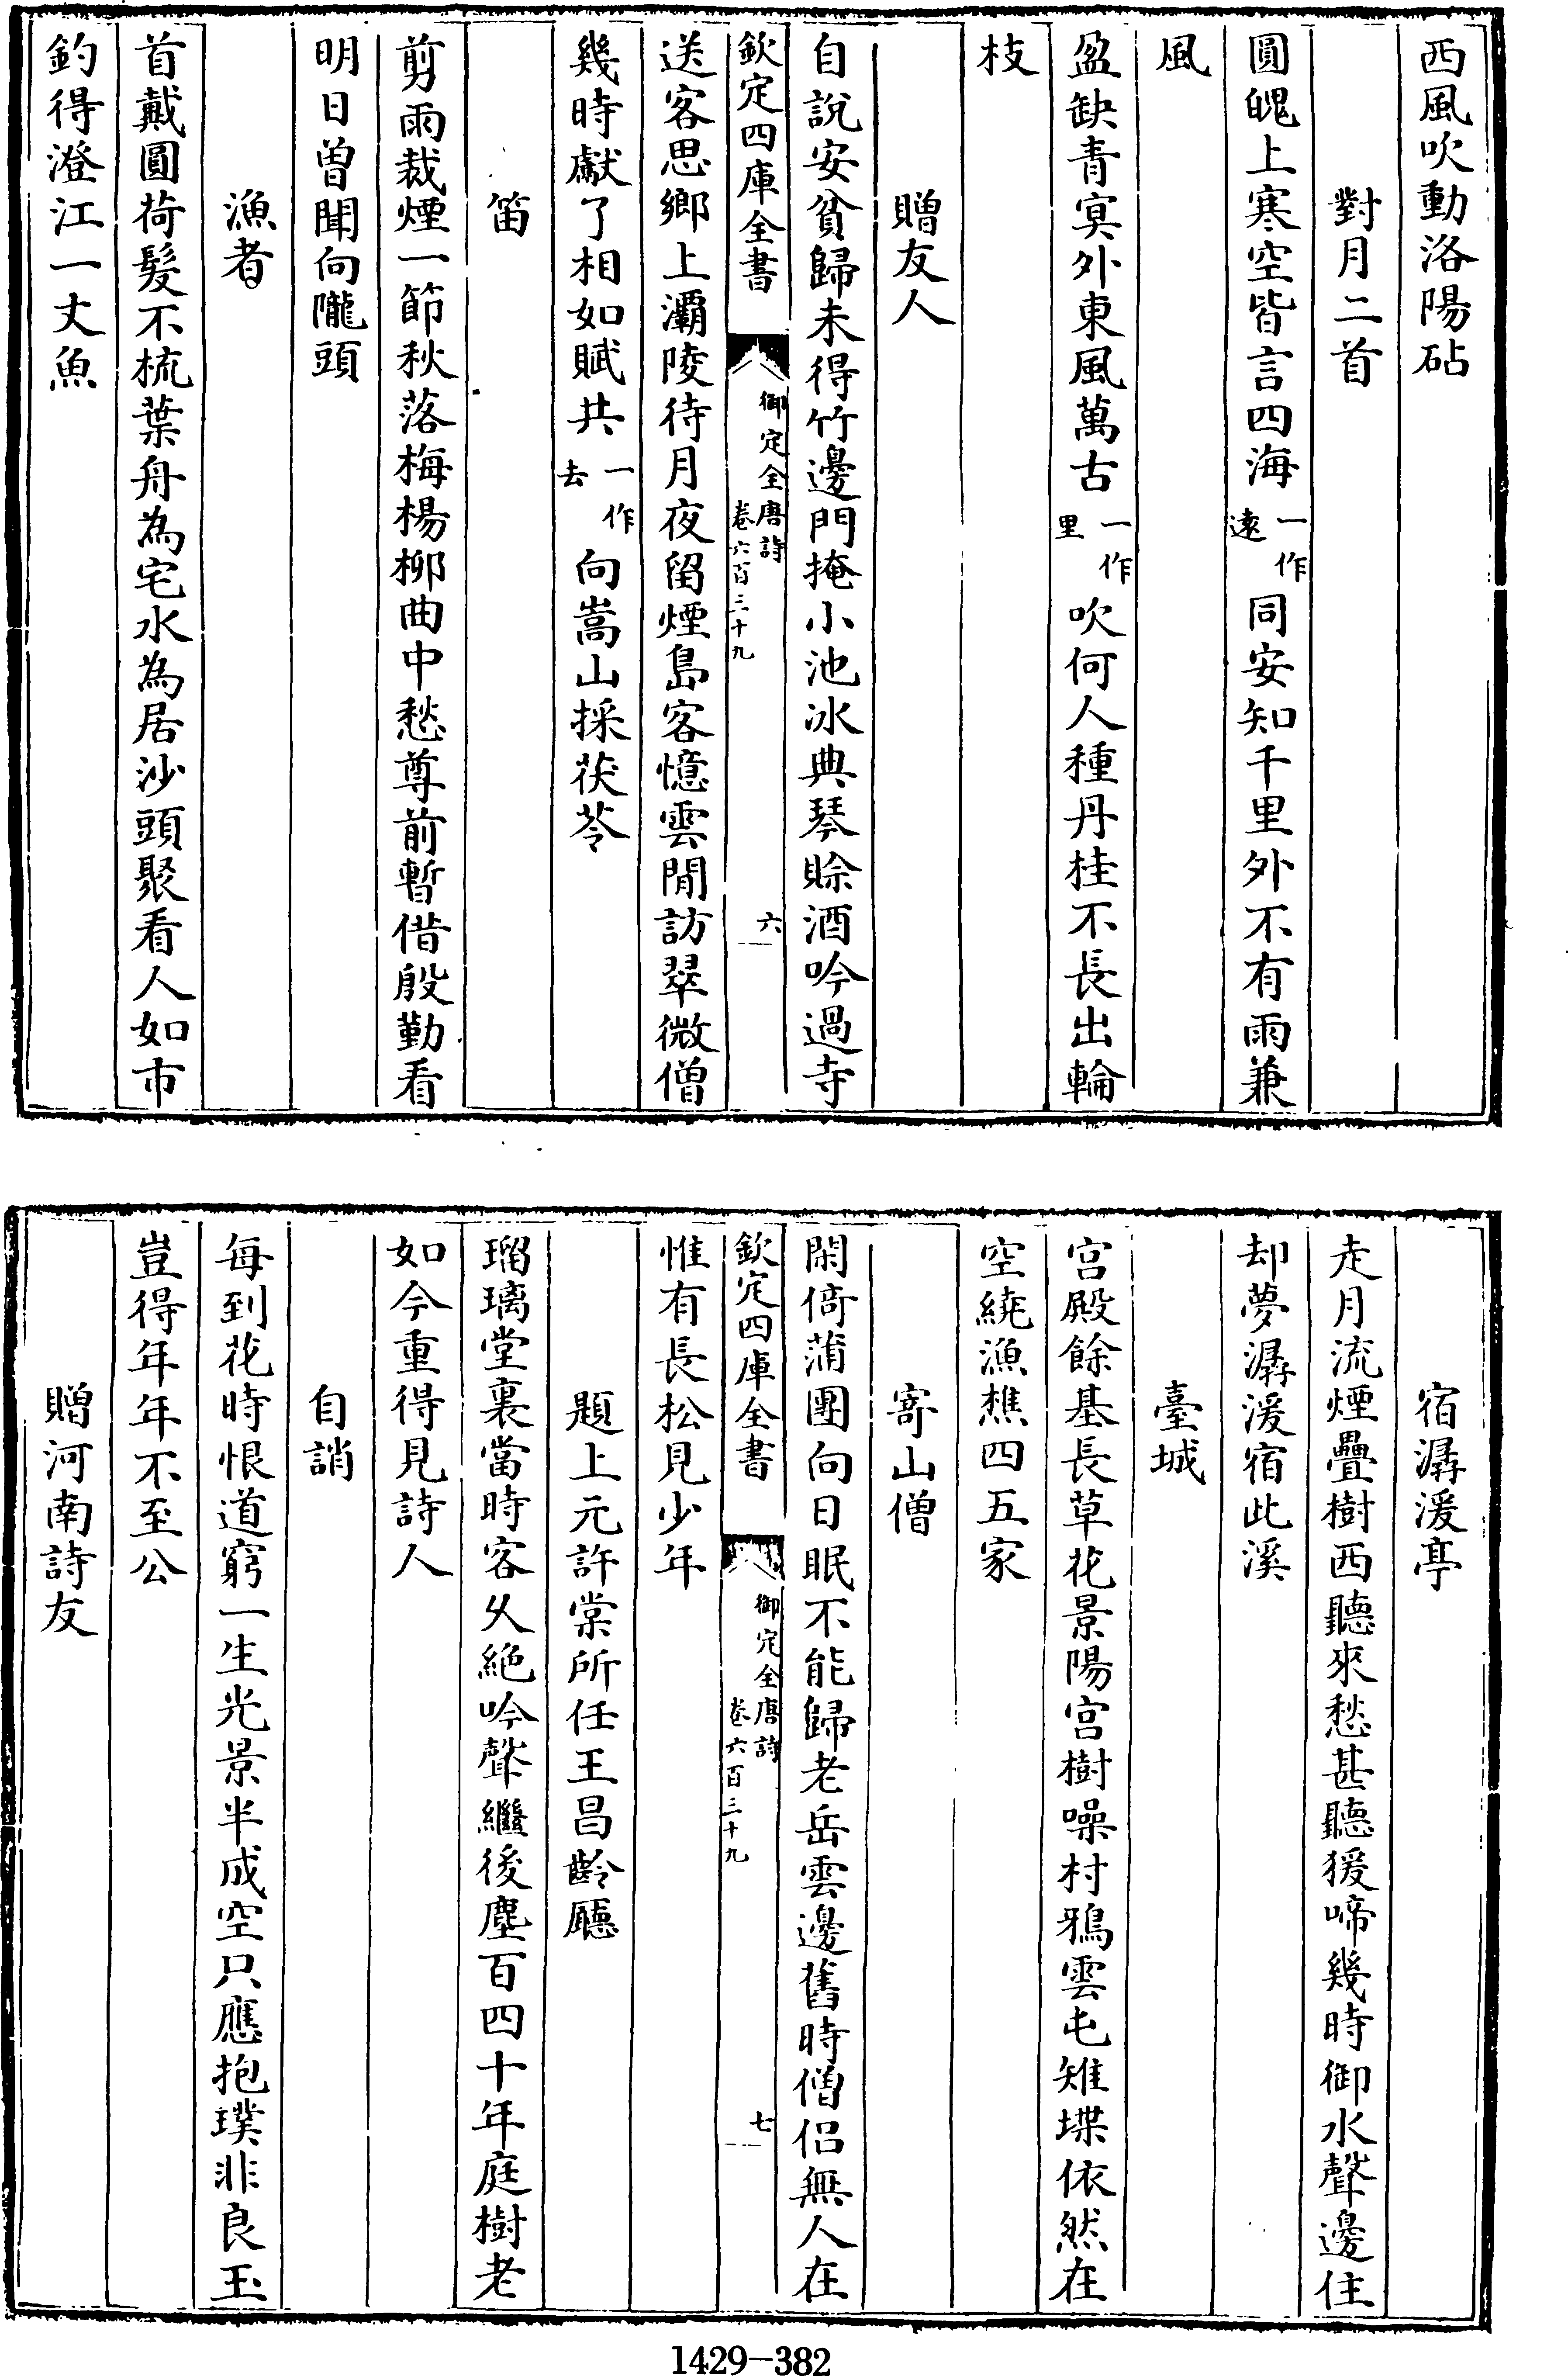 西風吹動洛陽砧
對月二首
圓魄上寒空皆言四海一作遠同安知千里外不有雨兼
風
盈缺青冥外東風萬古一作里吹何人種丹桂不長出輪
枝
贈友人
自説安貧歸未得竹邊門掩小池冰典琴賒酒吟過寺
欽定四庫全書
御定全唐詩
卷六百三十九
六
送客思鄉上灞陵待月夜留煙島客憶雲閒訪翠微僧
幾時獻了相如賦共一作去向嵩山採茯苓
笛
剪雨裁煙一節秋落梅楊柳曲中愁尊前暫借殷勤看
明日曾聞向隴頭
漁者
首戴圓荷髮不梳葉舟為宅水為居沙頭聚看人如市
釣得澄江一丈魚
宿潺湲亭
走月流煙疊樹西聽來愁甚聽猨啼幾時御水聲邊住
却夢潺湲宿此溪
臺城
宫殿餘基長草花景陽宫樹噪村鴉雲屯雉堞依然在
空繞漁樵四五家
寄山僧
閑倚蒲團向日眠不能歸老岳雲邊舊時僧侣無人在
欽定四庫全書
御定全唐詩
卷六百三十九
七
惟有長松見少年
題上元許棠所任王昌齡廳
瑠璃堂裏當時客久絶吟聲繼後塵百四十年庭樹老
如今重得見詩人
自誚
每到花時恨道窮一生光景半成空只應抱璞非良玉
豈得年年不至公
贈河南詩友
1429-382